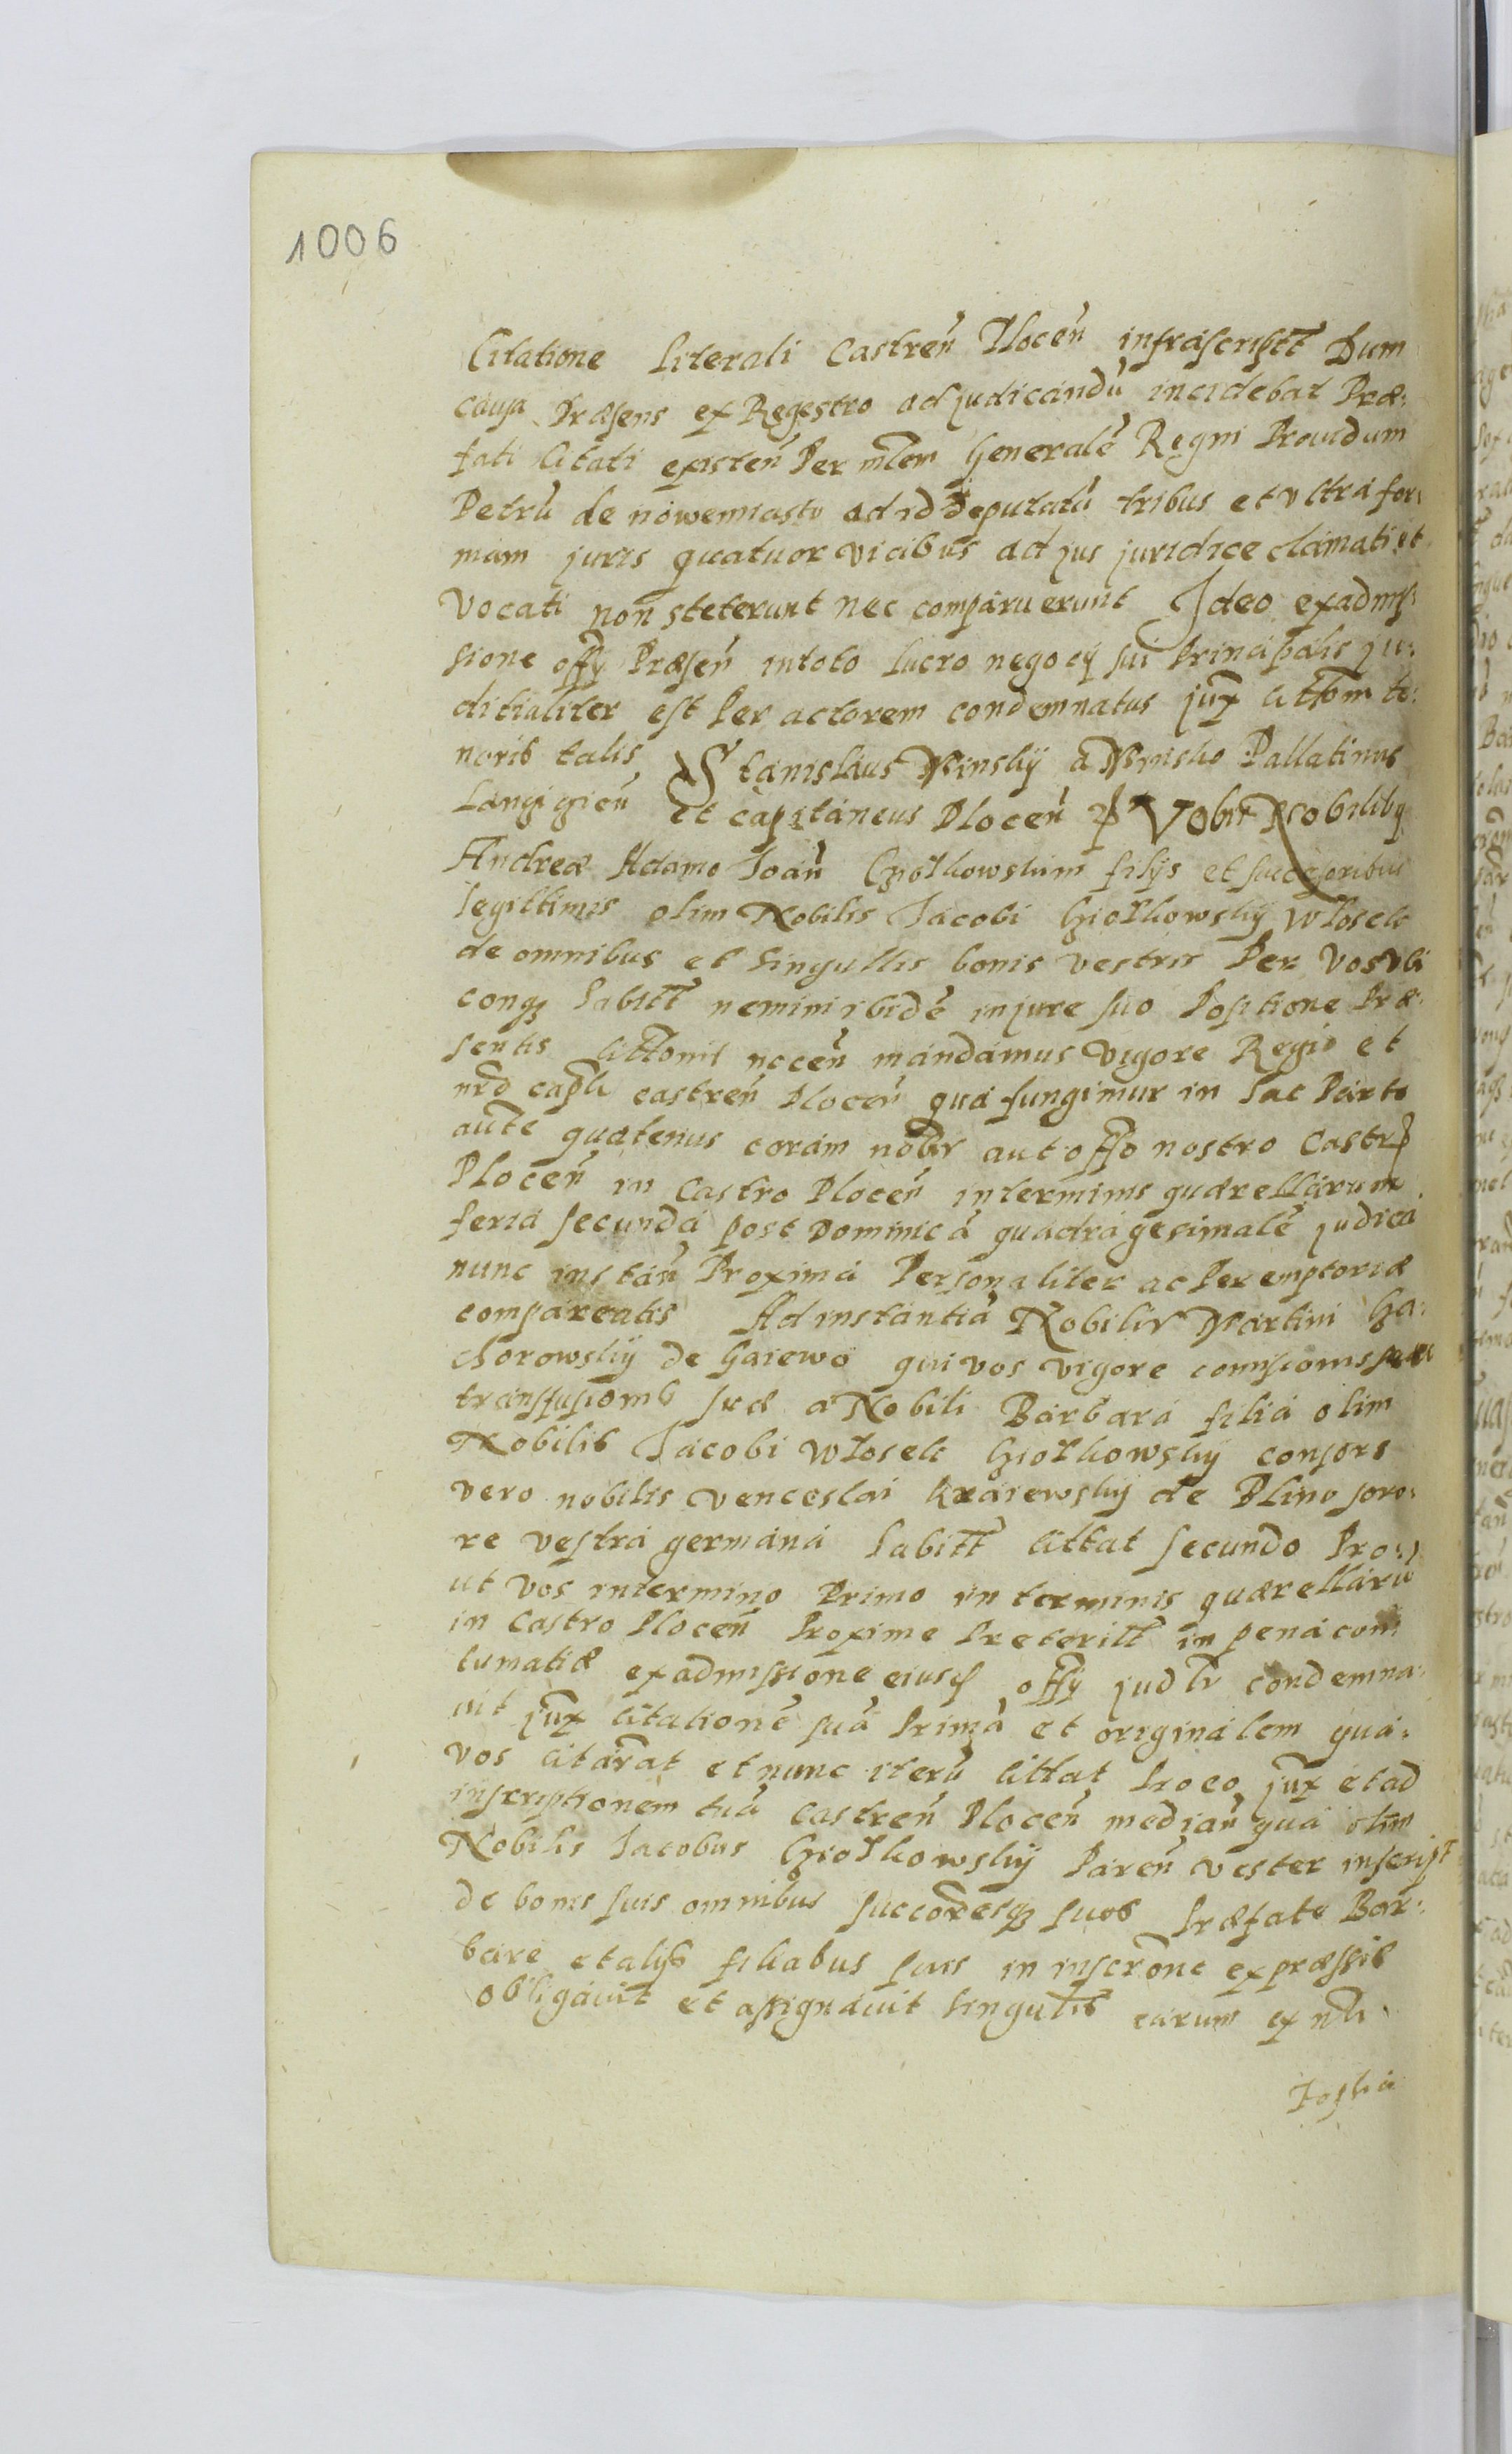 1006
Citatione literali Castreñ Ploceñ infrascriptt Dum
causa Præsens ex Regestro adjudicandũ incidebat Præ:
fati Citati existeñ Per mlem Generalẽ Regni Providum
Petrũ de nowemiasto ad id deputatũ tribus et vltra for:
mam juris quatuor vicibus ad jus juridice clamati et
vocati non steterunt nec comparuerunt Ideo exadmis:
sione offy Præseñ intoto lucro negocÿ sui Principalis ju:
ditialiter est Per actorem condemnatus juxͣ littõm te:
noris talis Stanislaus Minskÿ a Minsko Pallatinus
Langigieñ et capitaneus Ploceñ Vobis Nobilibq
Andreæ Adamo Joañ Gziołkowskim filijs et successoribus
legittimis olim Nobilis Jacobi Gziołkowskÿ Włosek
de omnibus et singullis bonis vestris Per vos vbi
conqꝫ habitt nemini ibidẽ injure suo Positione Præ:
sentis littonis noceñ mandamus vigore Regio et
nrõ capli castreñ Ploceñ qua fungimur in hac Parte
aute quatenus coram nobis aut offo nostro Castr
Ploceñ in Castro Ploceñ interminis quærellarum
feria secunda post Dominicã quadragesimalẽ judica
nunc instañ Proxima Personaliter ac Peremptoriæ
compareatis Ad instantiã Nobilis Martini Ga:
chorowskÿ de Gaiewo qui vos vigore comisionis seu
transfusionis suæ a Nobili Barbara filia olim
Nobilis Jacobi Włosek Gziołkowskÿ consors
vero nobilis venceslai Kraiewskÿ de Plino soro:
re vestra germana habitt littat secundo Pro:
ut vos intermino Primo in terminis quærellarũ
in Castro Ploceñ Proxime Preteritt in pena con
tumatiæ exadmissione eiusd offÿ judlr condemna:
vit juxͣ litationẽ suã Primã et originalem qua:
vos citarat et nunc iterũ littat Pro eo juxͣ et ad
inscriptionem tuã castreñ Ploceñ mediañ qua olim
Nobilis Jacobus Gziołkowskÿ Pareñ vester inscript
de bonis suis omnibus succoresqꝫ suos Præfate Bar:
bare et alÿs filiabus suis in inscrõne expræssis
obligavit et assignavit singulis earum ex nli
Toskia